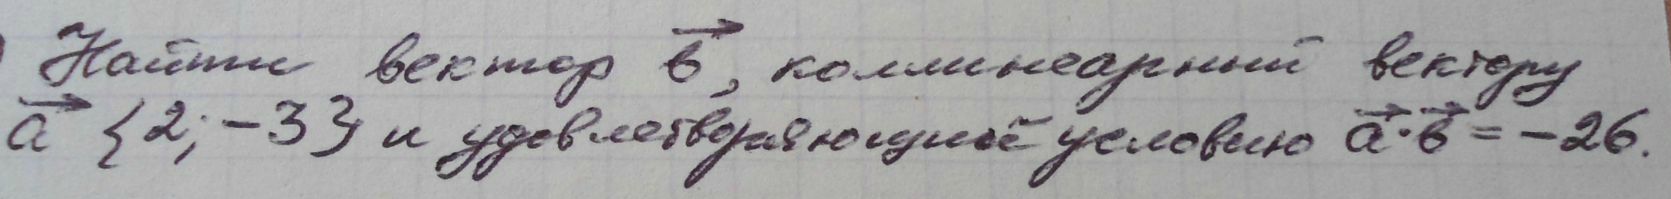 Найти вектор b⃗, коллинеарный вектору
a⃗ {2; -3} и удовлетворяющий условию a⃗·b⃗ = -26.